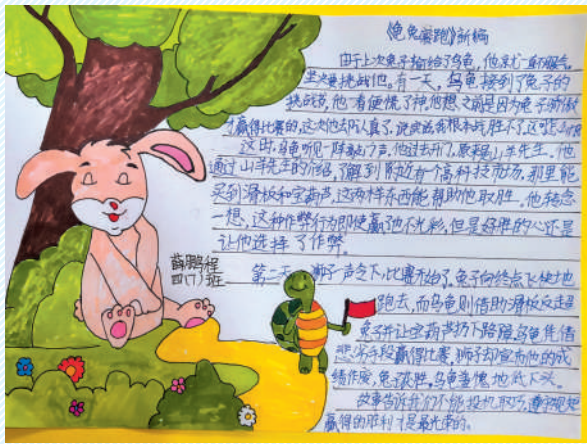 《龟兔赛跑》新编
由于上次兔子输给了乌龟，他就一直不服气。
要挑战他。有一天，乌龟接到了兔子的
挑战书，他一看便慌了神，他想：之前是因为兔子骄傲
才赢得比赛的，这次他去认真了，说实话我根本战胜不了，这
这时，乌龟听见一阵敲门声，他过去开门，原来是山羊先生。他
通过山羊先生的介绍，了解到附近有一个高科技市场，那里能
买到滑板和宝葫芦，这两样东西能帮助他取胜。他转念
一想，这种作弊行为即使赢了也不光彩，但是好胜的心还是
让他选择了作弊。
薛鹏程
四(7)班
第二天，狮子一声令下，比赛开始了，兔子向终点飞快地
跑去，而乌龟则借助滑板反超
兔子并让宝葫芦扔下路障。乌龟凭借
手段赢得比赛，狮子却宣布他的成
绩作废，兔子获胜。乌龟羞愧地低下头。
故事告诉我们不能投机取巧，遵守规矩
赢得的胜利才是最光荣的。